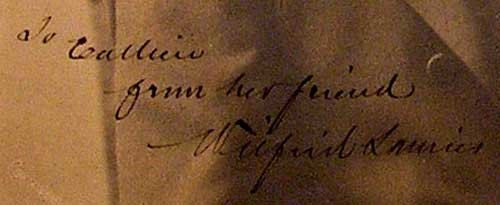 To
Cullie
from her friend
Wilfrid Laurier